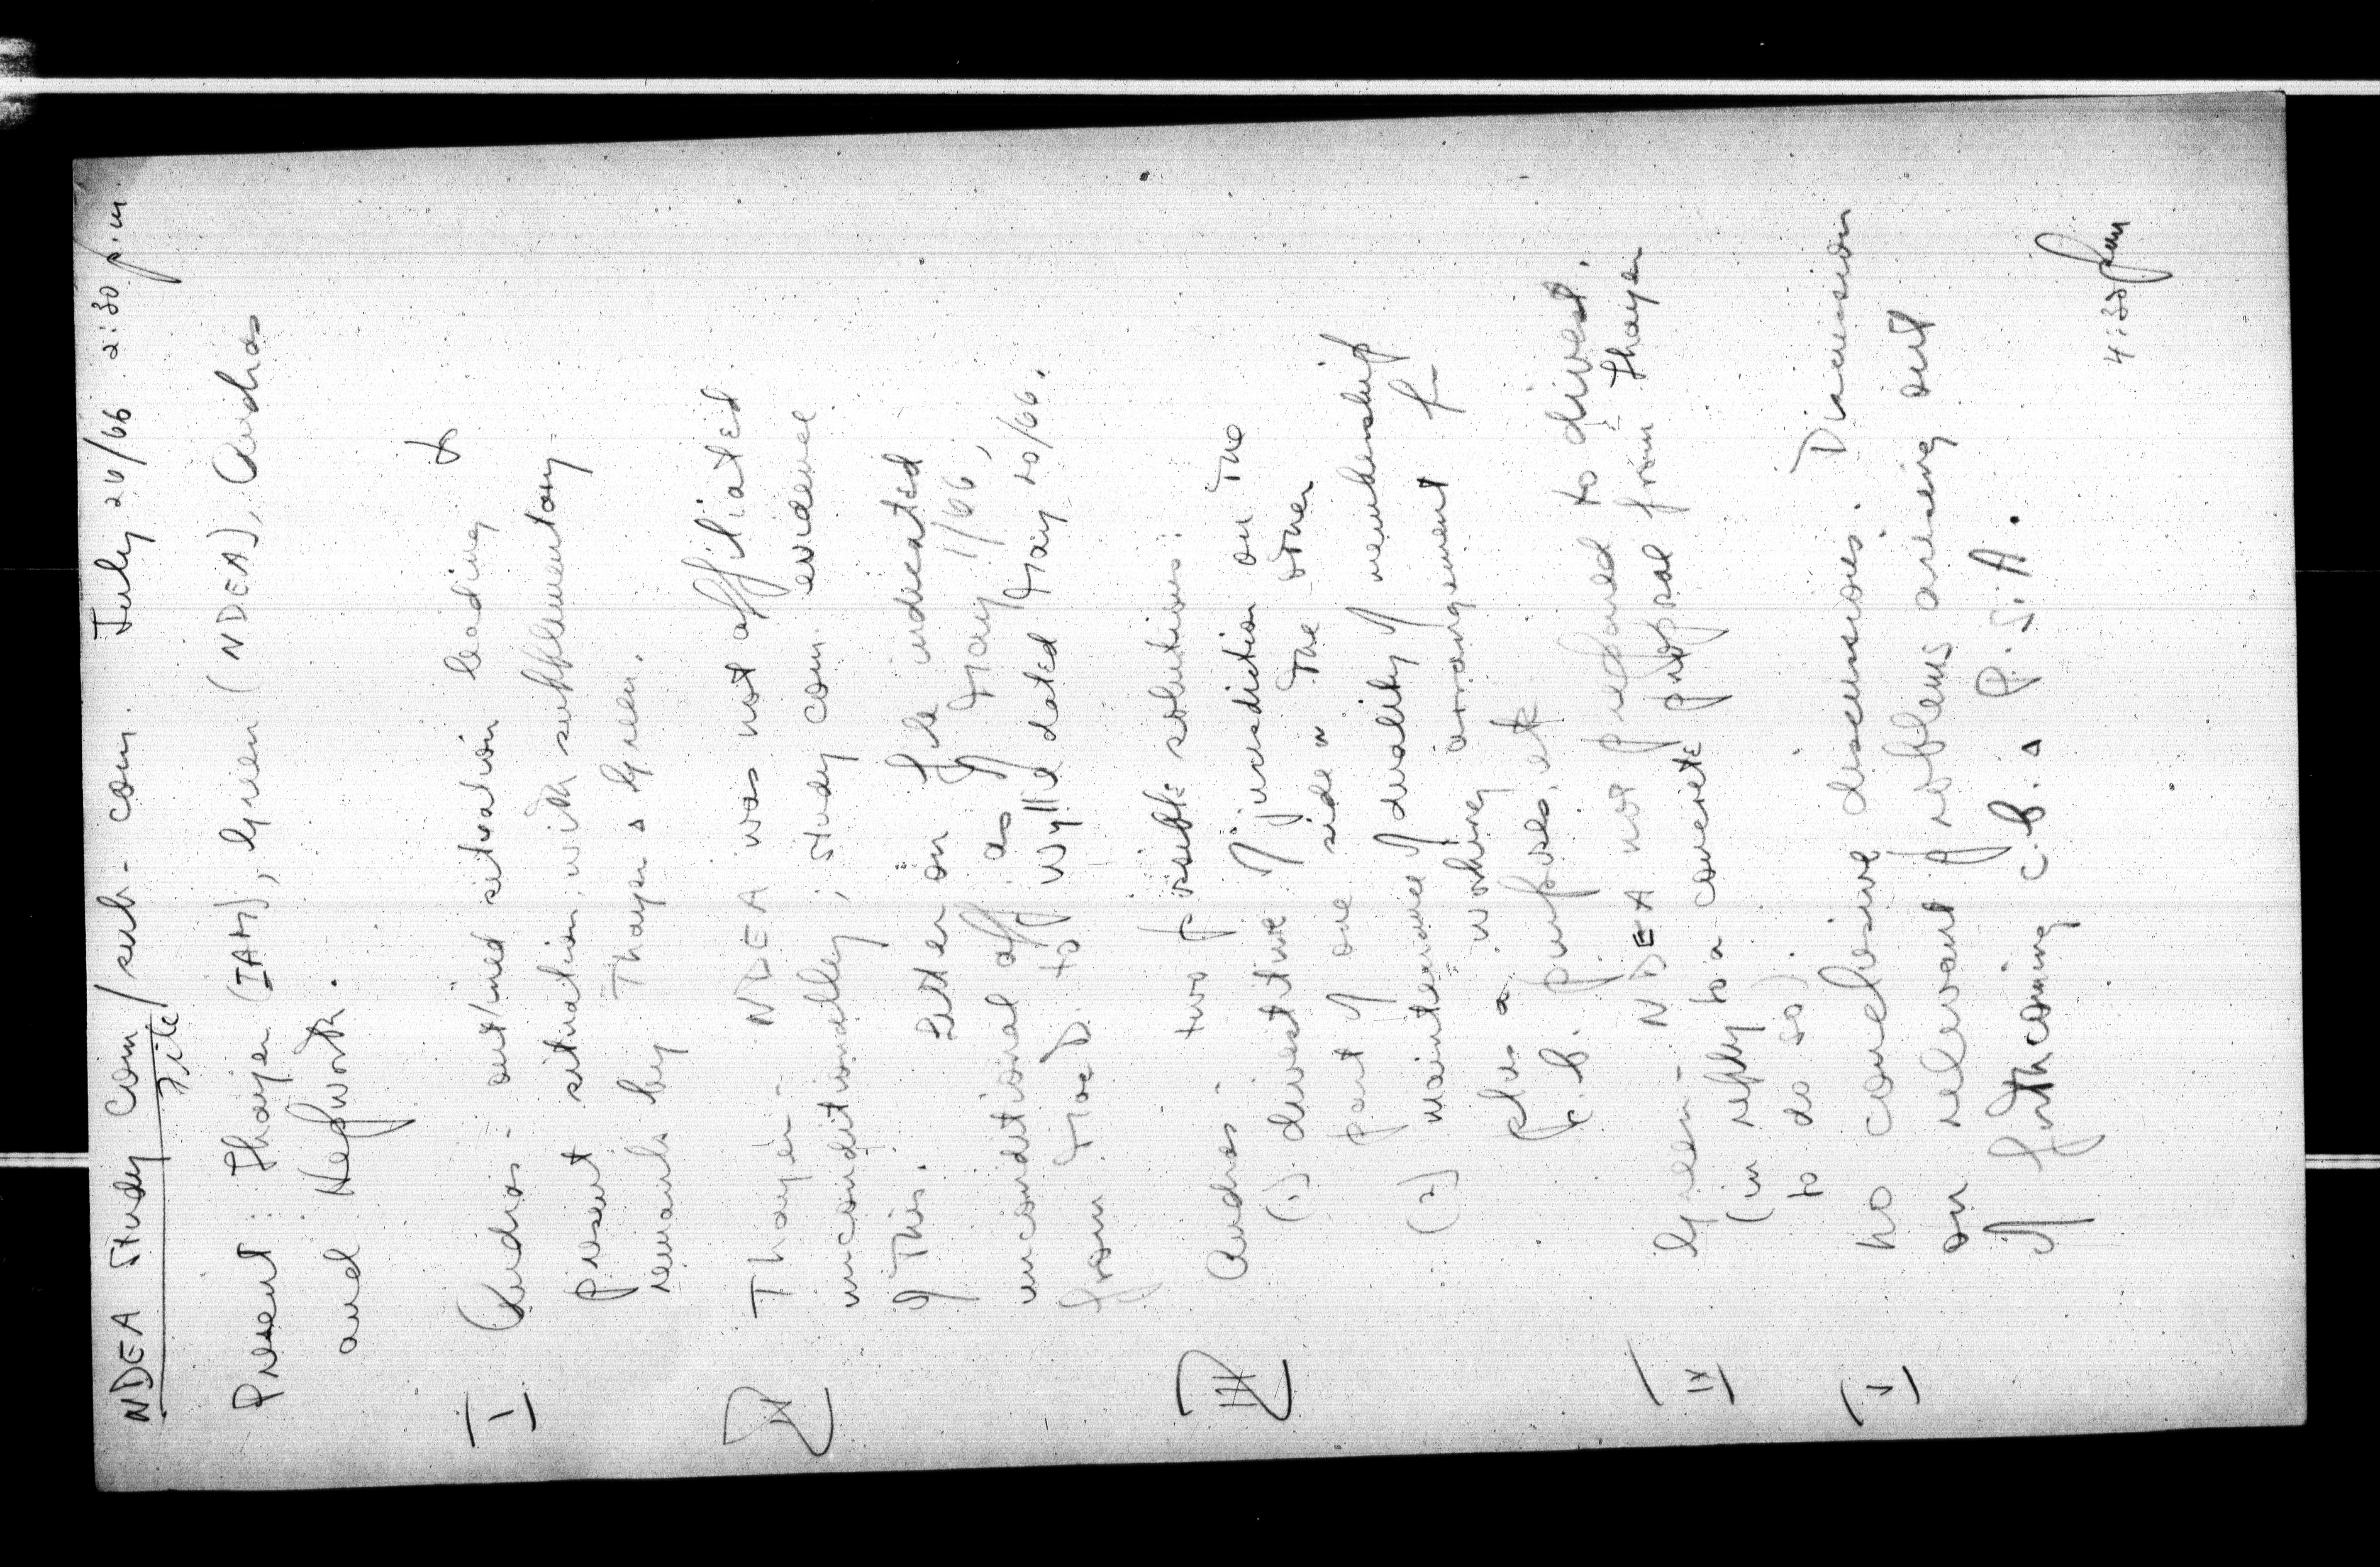 NDEA Study Com/sub-com. July 20/66 2:30 p.m.
File
Present: Thayer (IAM), Green (NDEA), Andras
and Hepworth.
(I) Andras - outlined situation leading to
present situation, with supplementary
remarks by Thayer & Green.
(II) Thayer - NDEA was not affiliated
unconditionally; study com. evidence
of this. Letter on file indicated
unconditional aff. as of May 1/66,
from MacD. to Wyllie dated May 20/66.
(III) Andras - two possible solutions:
(1) divestiture of jurisdiction on the
part of one side or the other
(2) maintenance of duality of membership
plus a working arrangement for
c.b. purposes, etc.
(IV) Green - NDEA not prepared to divest.
(in reply to a concrete proposal from Thayer
to do so).
(V) No conclusive discussions. Discussion
on relevant problems arising out
of forthcoming C.B. & P.S.A.
4:30 pm